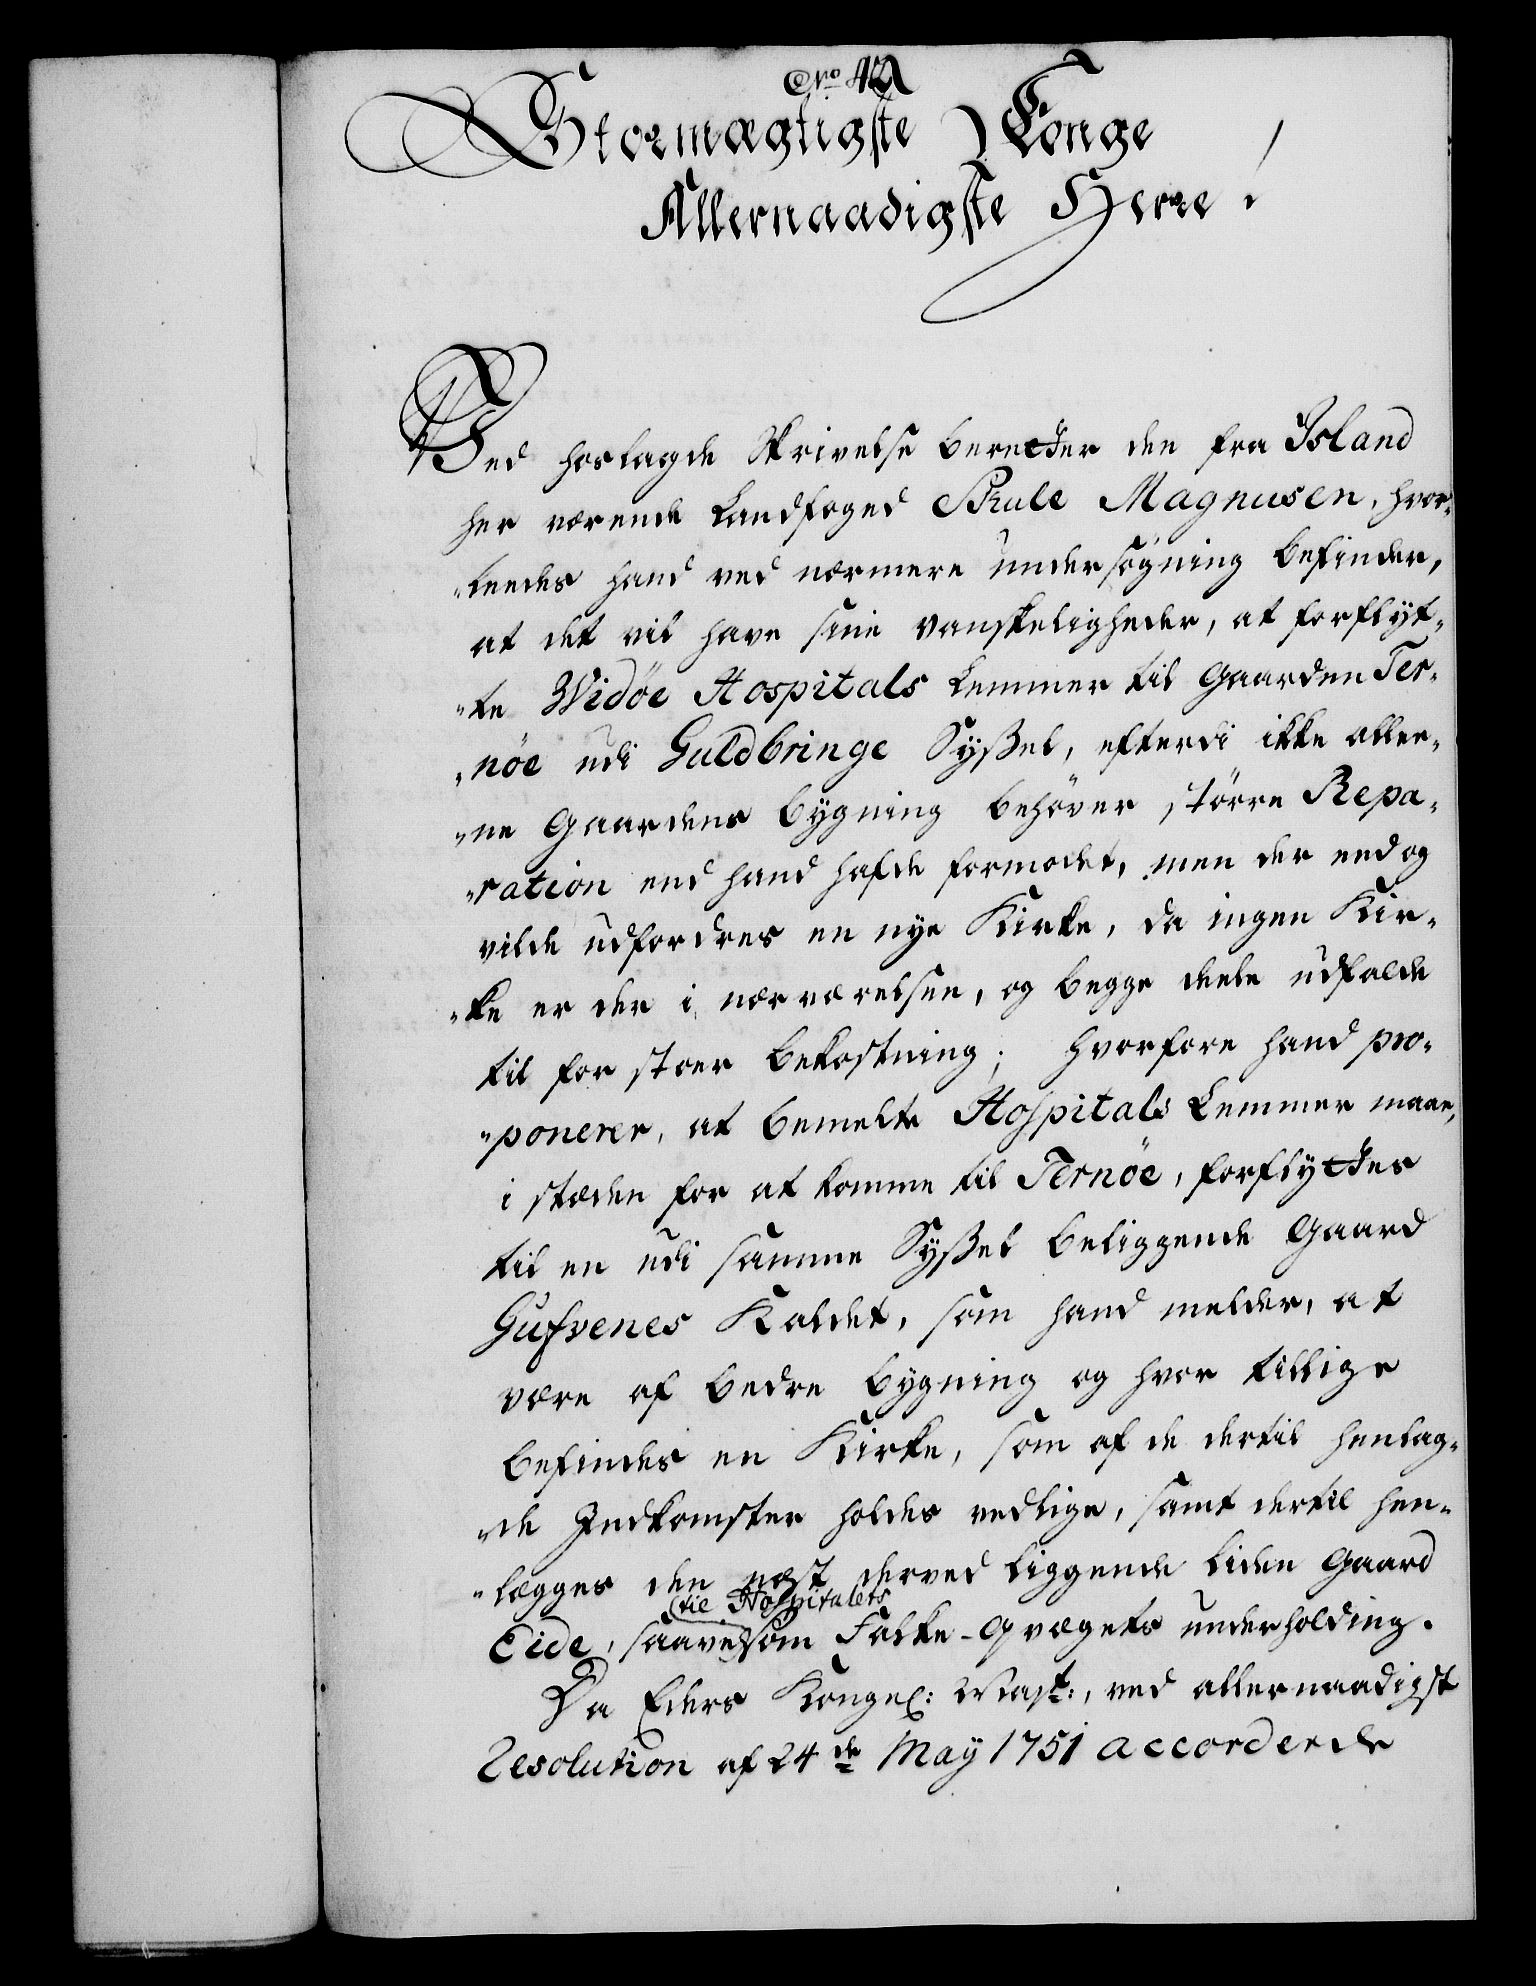 No 42
Stormægtigste Konge
Allernaadigste Herre!
Ved hoslagde Skrivelse beretter den fra Island
her værende Landfoged Skule Magnusen, hvor-
"ledes hand ved nærmere undersøgning befinder,
at det vil have sine vanskeligheder, at forflyt-
"te Widöe Hospitals Lemmer til Gaarden Ter-
"nöe udi Guldbringe Syssel, efterdi ikke allee-
"ne Gaardens bygning behöver större Repa-
"ration end hand hafde formodet, men der endog
vilde udfordres en nye Kirke, da ingen Kir-
"ke er der i nærværelsen, og begge deele udfalde
til for stoer bekostning; hvorfore hand pro-
"ponerer, at bemelte Hospitals Lemmer maae,
i stæden for at komme til Ternöe, forflyttes
til en udi samme Syssel beliggende Gaard
Gufvenes Kaldet, som hand melder, at
være af bedre bygning og hvor tillige
befindes en Kirke, som af de dertil henlag-
"de Indkomster holdes vedlige, samt dertil hen-
"lægges den næst derved liggende liden Gaard
til Hospitalets
Eide, saavelsom Falke-Qvægets underholding.
Da Eders Kongel: Mast:, ved allernaadigst
Resolution af 24de May 1751 accorderede